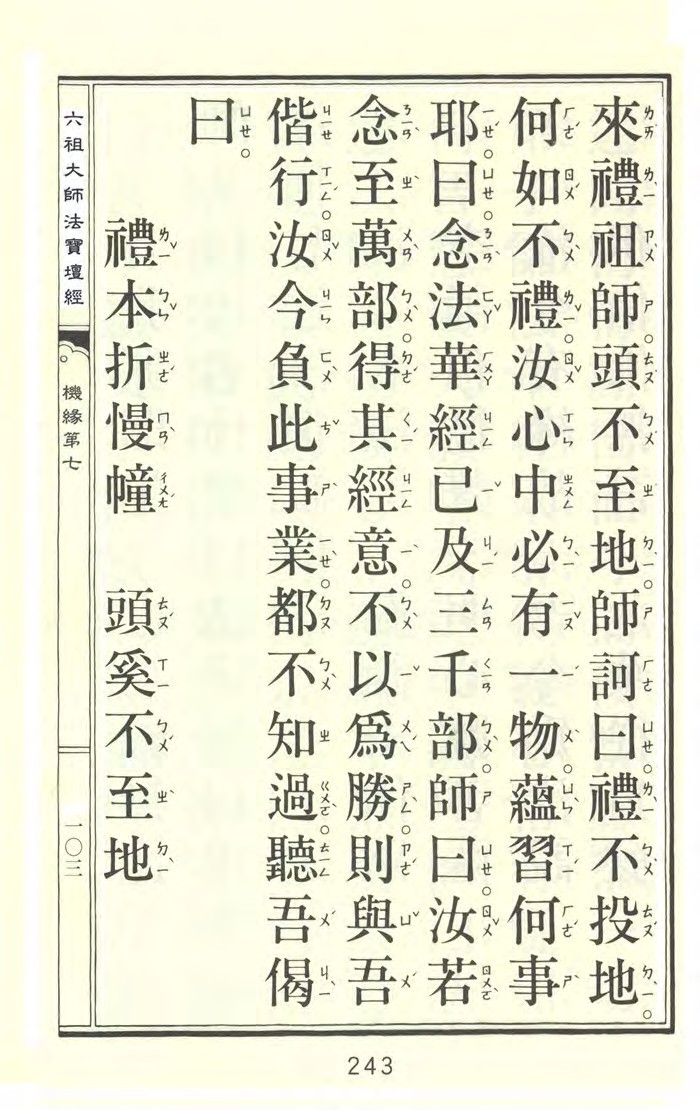 來禮祖師頭不至地。師訶曰。禮不投地。
何如不禮。汝心中必有一物。蘊習何事
耶。曰。念法華經已及三千部。師曰。汝若
念至萬部。得其經意。不以爲勝。則與吾
偕行。汝今負此事業。都不知過。聽吾偈
曰。
禮本折慢幢　頭奚不至地
六祖大師法寶壇經
機緣第七
一〇三
243